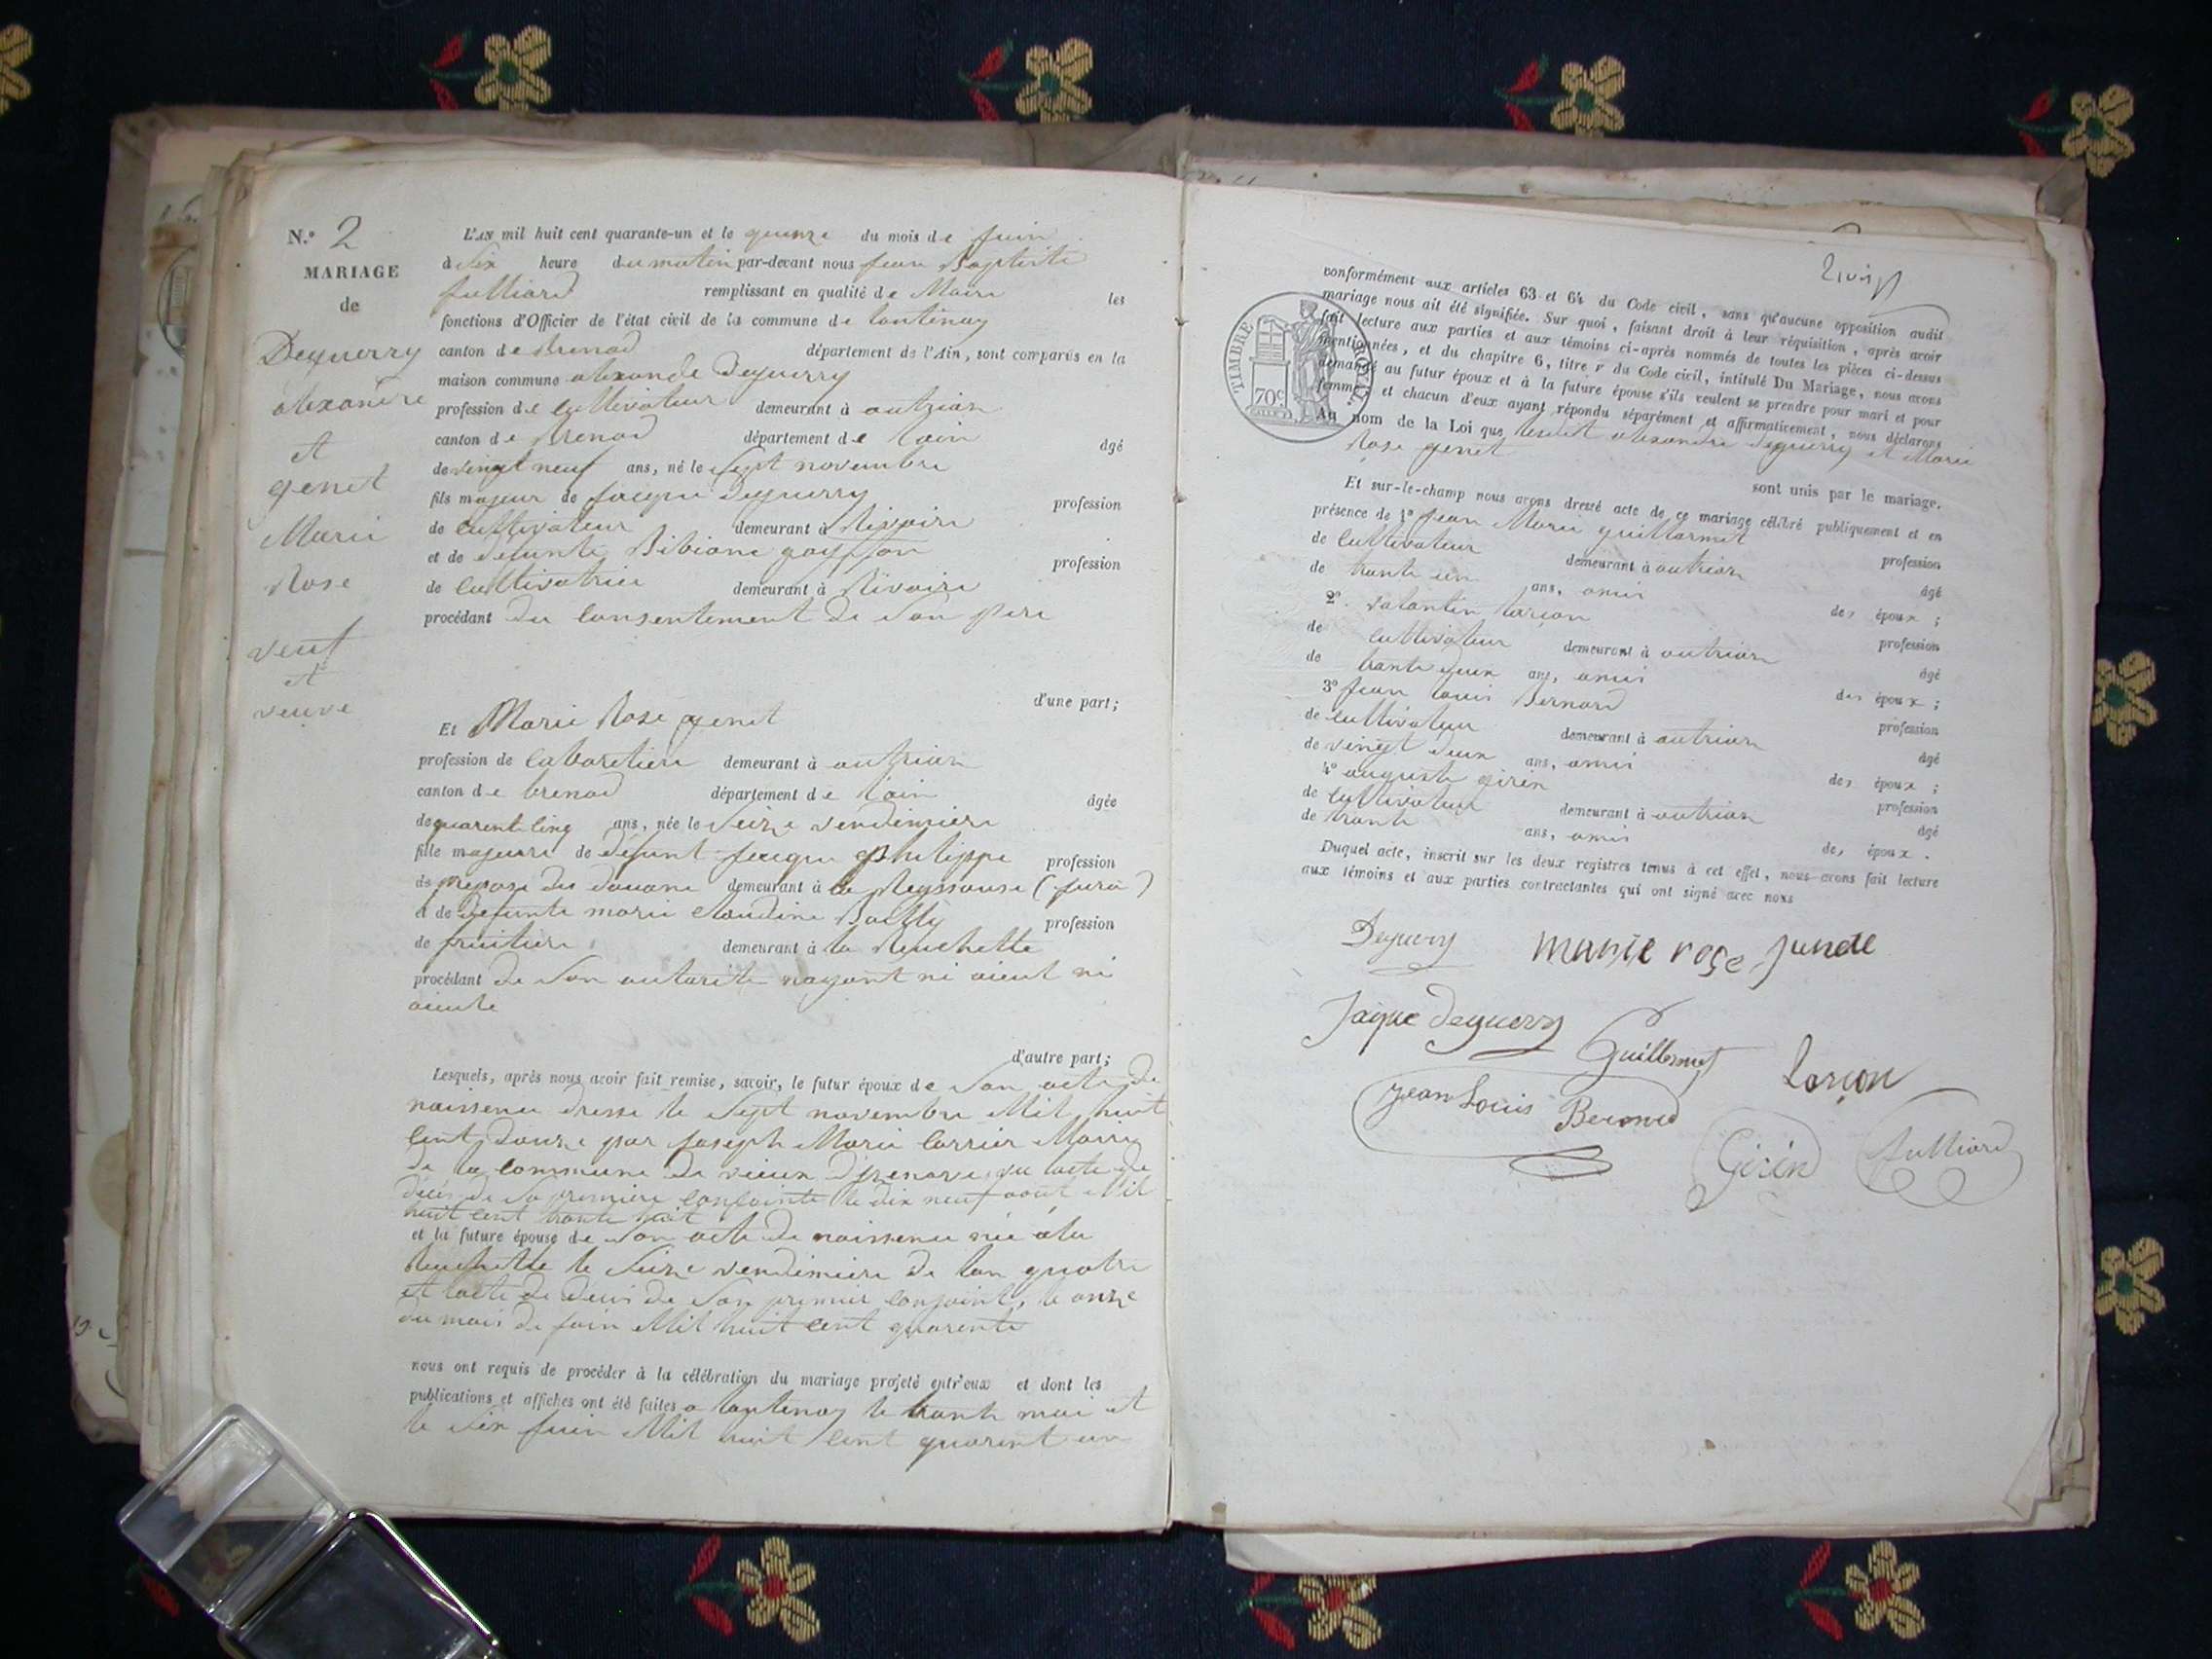 N.º 2
MARIAGE
de
Deguerry
alexandre
et
genet
Marie
Rose
veuf
et
veuve
L'AN mil huit cent quarante-un et le quinze du mois de juin
à dix heure du matin par-devant nous jean Baptiste
julliard remplissant en qualité de Maire les
fonctions d'Officier de l'état civil de la commune de lantenay
canton de Brenod département de l'Ain, sont comparus en la
maison commune alexande Deguerry
profession de cultivateur demeurant à outrian
canton de Brenod département de lain âgé
de vingt neuf ans, né le sept novembre
fils majeur de jacque deguerry profession
de cultivateur demeurant à Rivoire
et de défunte Bibiane profession
de cultivatrice demeurant à Rivoire
procédant du consentement de son pere
d'une part;
Et Marie Rose genet
profession de cabaretiere demeurant à outrian
canton de brenod département de lain âgée
de quarente cinq ans, née le seize vendemiere
fille majeure de défunt jacque philippe profession
de preposé des douane demeurant à la Reyssouse (jura)
et de defunte marie claudine Bailly profession
de fruitiere demeurant à la
procédant de son autorité nayant ni aieul ni
aieule
d'autre part;
Lesquels, après nous avoir fait remise, savoir, le futur époux de son acte de
naissence dressé le sept novembre Mil huit
cent douze par joseph Marie carrier Maire
de la commune de vieux d'izenave, vu lacte de
décès de sa premiere conjointe le dix neuf aout Mil
huit cent trante huit
et la future épouse de son acte de naissence née à la
le seize vendemiere de lan quatre
et lacte de décès de son premier conjoint, le onze
du mois de juin Mil huit cent quarente
nous ont requis de procéder à la célébration du mariage projeté entr'eux et dont les
publications et affiches ont été faites a lantenay le trante mai et
le six juin Mil huit cent quarent un
conformément aux articles 63 et 64 du Code civil, sans qu'aucune opposition audit
mariage nous ait été signifiée. Sur quoi, faisant droit à leur réquisition, après avoir
fait lecture aux parties et aux témoins ci-après nommés de toutes les pièces ci-dessus
mentionnées, et du chapitre 6, titre v du Code civil, intitulé Du Mariage, nous avons
demandé au futur époux et à la future épouse s'ils veulent se prendre pour mari et pour
femme, et chacun d'eux ayant répondu séparément et affirmativement, nous déclarons
Au nom de la Loi que lesdit alexandre deguerry et Marie
Rose genet
sont unis par le mariage.
TIMBRE ROYAL
70c
Et sur-le-champ nous avons dressé acte de ce mariage célébré publiquement et en
présence de 1º jean Marie guillermet profession
de cultivateur demeurant à outrian âgé
de trante un ans, amis des époux;
2º. valantin larçon profession
de cultivateur demeurant à outrian âgé
de trante deux ans, amis des époux;
3º jean louis Bernard profession
de cultivateur demeurant à outrian âgé
de vingt deux ans, amis des époux;
4º auguste girin profession
de cultivateur demeurant à outrian âgé
de trante ans, amis des époux.
Duquel acte, inscrit sur les deux registres tenus à cet effet, nous avons fait lecture
aux témoins et aux parties contractantes qui ont signé avec nous
Deguerry marie rose junete
Jaque deguerry Guillermet Larçon
jean Louis Bernard Girin julliard